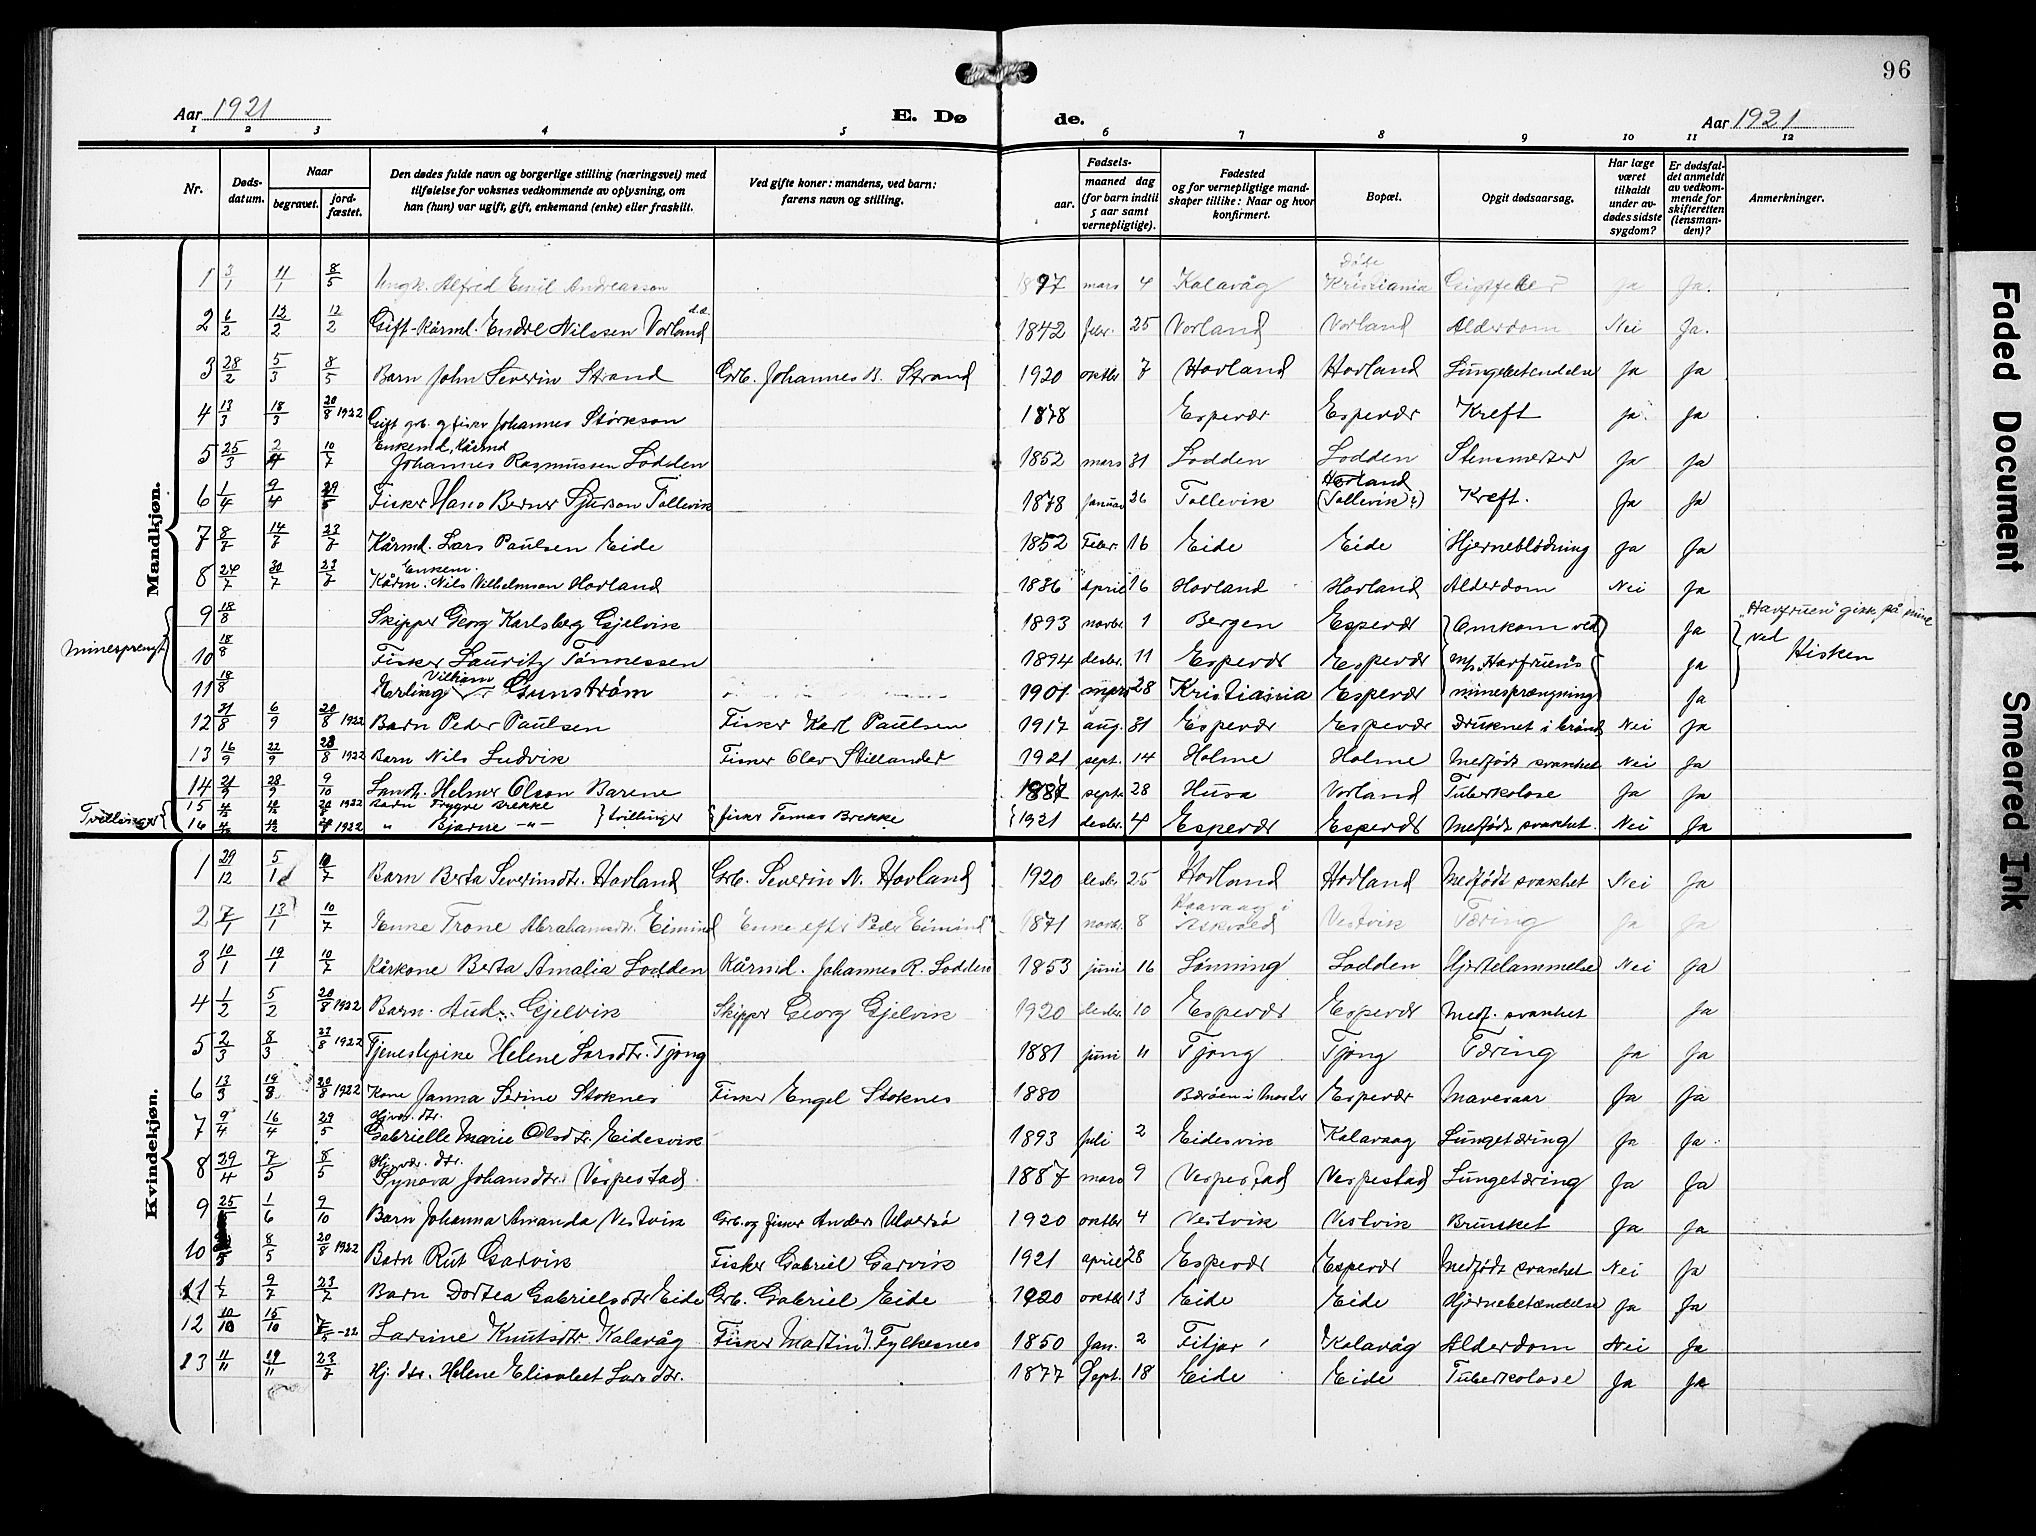 96
Aar 1921 E. Dø de. Aar 1921
1 2 3 4 5 6 7 8 9 10 11 12
Nr. Døds-datum. Naar begravet. jord-fæstet. Den dødes fulde navn og borgerlige stilling (næringsvei) med tilføielse for voksnes vedkommende av oplysning, om han (hun) var ugift, gift, enkemand (enke) eller fraskilt. Ved gifte koner: mandens, ved barn: farens navn og stilling. Fødsels- aar. maaned dag (for barn indtil 5 aar samt vernepligtige). Fødested og for vernepligtige mandskaper tillike: Naar og hvor konfirmert. Bopæl. Opgit dødsaarsag. Har læge været tilkaldt under avdødes sidste sygdom? Er dødsfaldet anmeldt av vedkommende for skifteretten (lensmanden)? Anmerkninger.
Mandkjøn.
1 3/1 11/1 8/5 Ungk. Alfred Emil Andreassen 1897 mars 4 Kalavåg Døde Kristiania Ja Ja.
2 6/2 12/2 12/2 Gift Kårmd. Endre Nilssen Vorland d.e. 1842 febr. 25 Vorland Vorland Alderdom Nei Ja.
3 28/2 5/3 8/5 Barn John Severin Strand Grb. Johannes B. Strand 1920 oktbr 7 Hovland Hovland Lungebetendelse Ja Ja
4 13/3 18/3 20/8 1922 Gift grb. og fisker Johannes Størkson 1878 Espevær Espevær Kreft Ja Ja
5 25/3 2/4 10/7 Enkemd, Kårmd Johannes Rasmussen Lodden 1852 mars 31 Lodden Lodden Stensmerter Ja Ja
6 1/4 9/4 29/5 Fisker Hans Berner Sjurson Tollevik 1878 Januar 26 Tollevik Hovland (Tollevik?) Kreft. Ja Ja
7 8/7 14/7 23/7 Kårmd. Lars Paulsen Eide 1852 Febr. 16 Eide Eide Hjerneblødning Ja Ja
8 24/7 30/7 23/7 Enkem. Kårm. Nils Vilhelmson Hovland 1836 April 16 Hovland Hovland Alderdom Nei Ja
9 18/8 Skipper Georg Karlsberg Gjelvik 1893 novbr. 1 Bergen Espevær Omkom ved Ja "Havfruen" gikk på mine
minesprengt 10 18/8 Fisker Lauritz Tønnessen 1894 desbr. 11 Espevær Espevær m/s "Havfruen"s Ja ved Hisken
11 18/8 Erling Vilhelm Grunstrøm 1901 mars 28 Kristiania Espevær minesprængning Ja
12 31/8 6/9 20/8 1922 Barn Peder Paulsen Fisker Karl Paulsen 1917 aug. 31 Espevær Espevær Druknet i brønd Nei Ja
13 16/9 22/9 23/8 1922 Barn Nils Ludvik Fisker Olav Stillander 1921 sept. 14 Holme Holme Medfødt svakhet Nei Ja
14 21/9 28/9 9/10 Helmer Olson Barene 1881 septe 28 Husa Vorland Tuberkolose Ja Ja
15 20/8 1922 Barn Trygve Brekke
Tvillinger 16 1922 " Bjarne -"- } tvillinger { fisker Tomas Brekke 1921 desbr. 4 Espevær Espevær Medfødt svakhet. Nei Ja
Kvindekjøn.
1 29/12 5/1 10/7 Barn Berta Severinsdtr. Hovland Grb. Severin N. Hovland 1920 desbr. 25 Hovland Hovland Medfødt svakhet Nei Ja
2 7/1 13/1 10/7 Enke Trone Abrahamsdtr. Eimind Enke efter Peder Eimind 1871 novbr. 8 i Askvold Vestvik Tæring Ja Ja
3 10/1 19/1 10/7 Kårkone Berta Amalia Lodden Kårmd. Johannes R. Lodden 1853 juni 16 Lønning Lodden Hjertelammelse Nei Ja
4 1/2 5/2 20/8 1922 Barn Aud Gjelvik Skipper Georg Gjelvik 1920 desbr. 10 Espevær Espevær Medf. svakhet Ja
5 2/3 8/3 27/8 1922 Tjenestepike Helene Larsdtr. Tjong 1881 juni 11 Tjong Tjong Tæring Ja Ja
6 13/3 19/3 20/8 1922 Kone Janna Serine Stoknes Fisker Engel Stoknes 1880 Bærøen i Moster Espevær Mavesaar Ja Ja
7 9/4 16/4 29/5 Hjvær. dtr. Gabrielle Marie Olsdtr. Eidesvik 1893 Juli 2 Eidesvik Kalavaag Lungetæring Ja Ja
8 29/4 7/5 8/5 Hjvær. dtr. Synøva Johansdtr. Vespestad 1887 mars 9 Vespestad Vespestad Lungetæring Ja Ja
9 25 1/6 9/10 Barn Johanna Amanda Vestvik Grb. og fisker Anders Ulversø 1920 oktbr 4 Vestvik Vestvik Brunsket Ja Ja
10 8/5 20/8 1922 Barn Rut Garvik Fisker Gabriel Garvik 1921 april 28 Espevær Espevær Medfødt svakhet Nei Ja
11 1/7 9/7 23/7 Barn Dortea Gabrielsdtr Eide Grb. Gabriel Eide 1920 oktbr 13 Eide Eide Hjernebetændelse Ja Ja
12 10/10 15/10 7/5-22 Larsine Knutsdtr. Kalavåg Fisker Martin J. Fylkesnes 1850 Jan. 2 Fitjar Kalavåg Alderdom Nei Ja
13 11/11 19/11 23/7 Hj. dtr. Helene Elisabet Larsdtr. 1877 Sept. 18 Eide Eide Tuberkolose Ja Ja
Faded Document
Smeared Ink